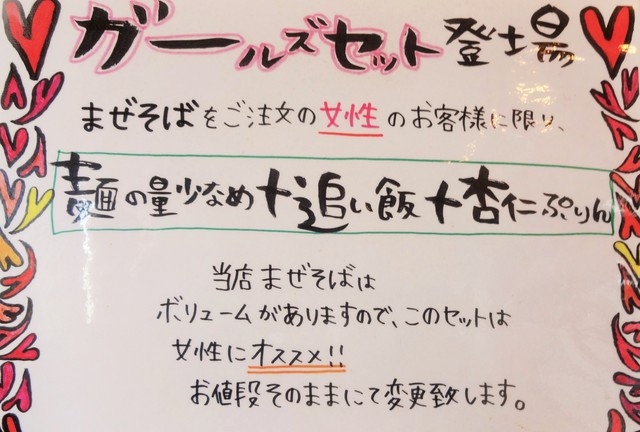 ガールズセット登場
まぜそばをご注文の女性のお客様に限り、
麺の量少なめ+追い飯+杏仁ぷりん
当店まぜそばは
ボリュームがありますので、このセットは
女性にオススメ!!
お値段そのままにて変更致します。